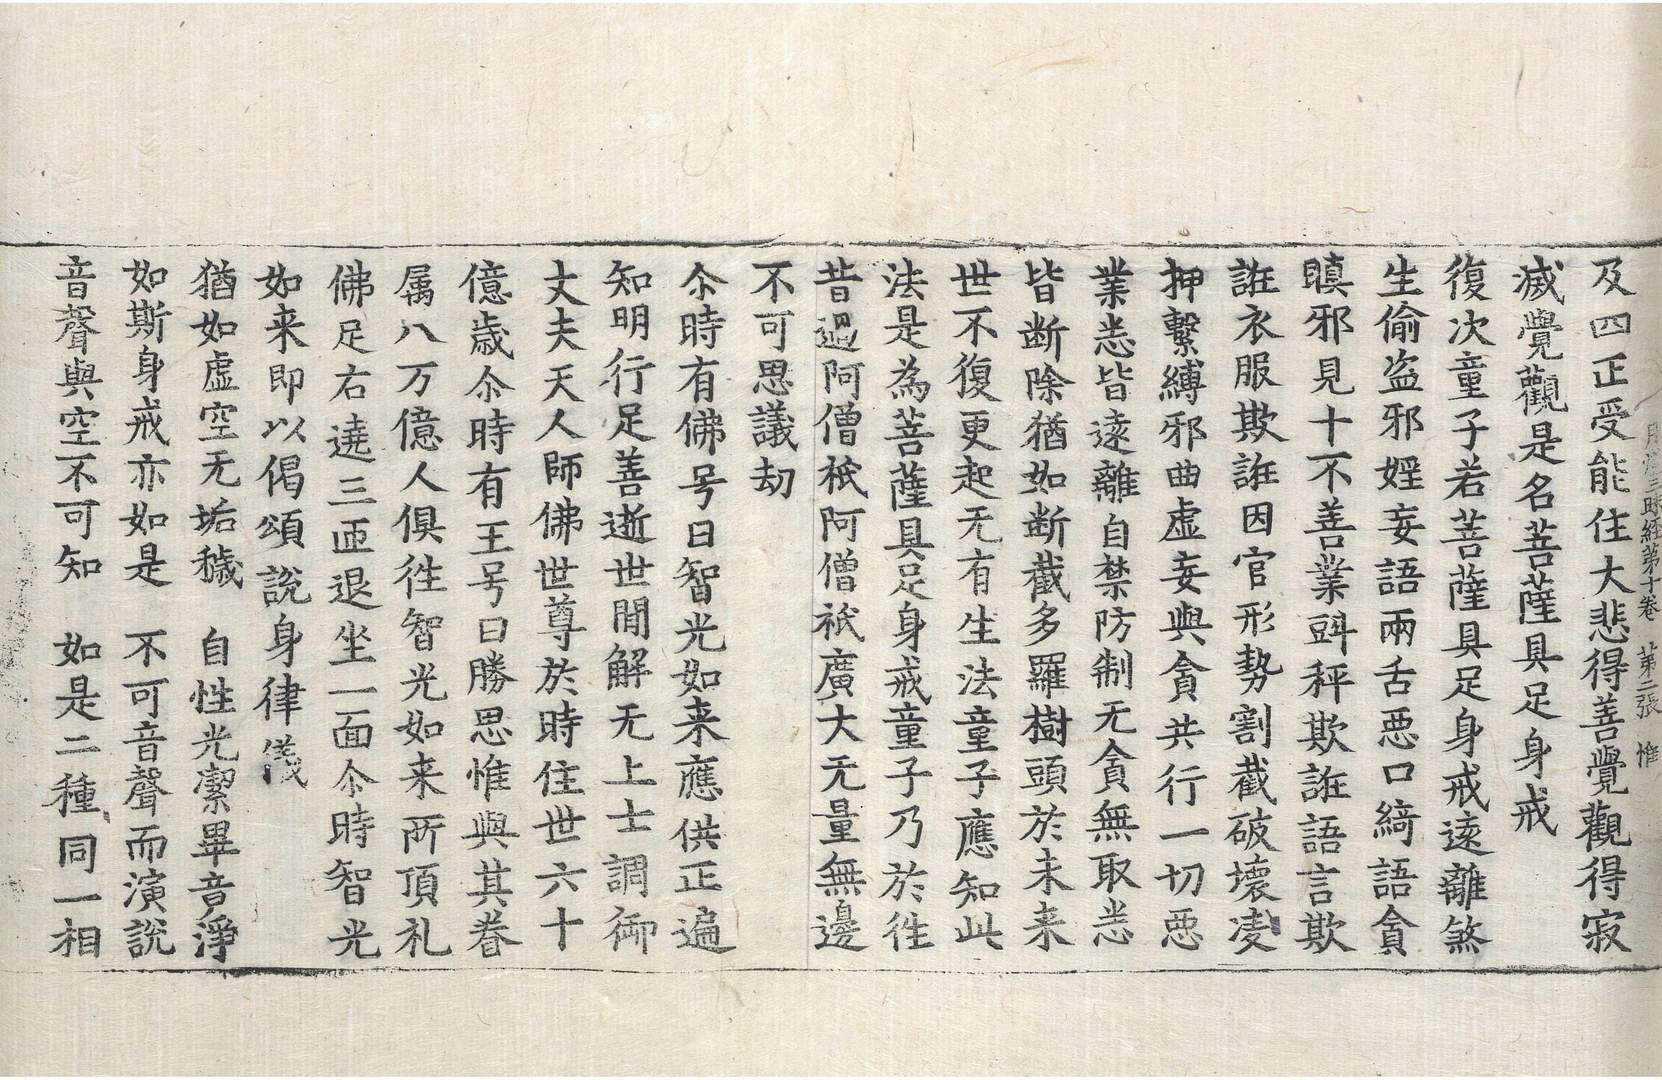 月燈三昧経第十卷　第二張　惟
及四正受能住大悲得善覺觀得寂
滅覺觀是名菩薩具足身戒
復次童子若菩薩具足身戒遠離煞
生偷盗邪婬妄語兩舌惡口綺語貪
瞋邪見十不善業㪷秤欺誑語言欺
誑衣服欺誑因官形勢割截破壞凌
押繫縛邪曲虛妄與貪共行一切惡
業悉皆遠離自禁防制无貪無取悉
皆断除猶如断截多羅樹頭於未来
世不復更起无有生法童子應知此
法是為菩薩具足身戒童子乃於徃
昔過阿僧祇阿僧祇廣大无量無邊
不可思議劫
尒時有佛号曰智光如来應供正遍
知明行足善逝世間解无上士調御
丈夫天人師佛世尊於時住世六十
億歲尒時有王号曰勝思惟與其眷
属八万億人俱徃智光如来所頂礼
佛足右遶三匝退坐一面尒時智光
如来即以偈頌說身律儀
猶如虛空无垢穢　自性光潔畢音淨
如斯身戒亦如是　不可音聲而演說
音聲與空不可知　如是二種同一相